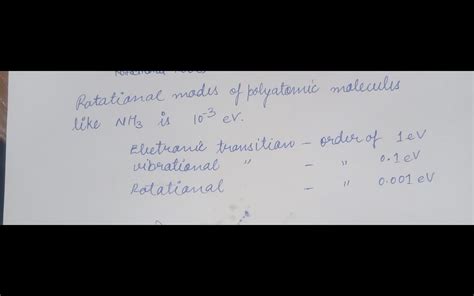 Rotational modes of polyatomic molecules
like NH3 is 10-3 eV.
Electronic transition - order of 1 eV
vibrational " - " 0.1 eV
Rotational - " 0.001 eV